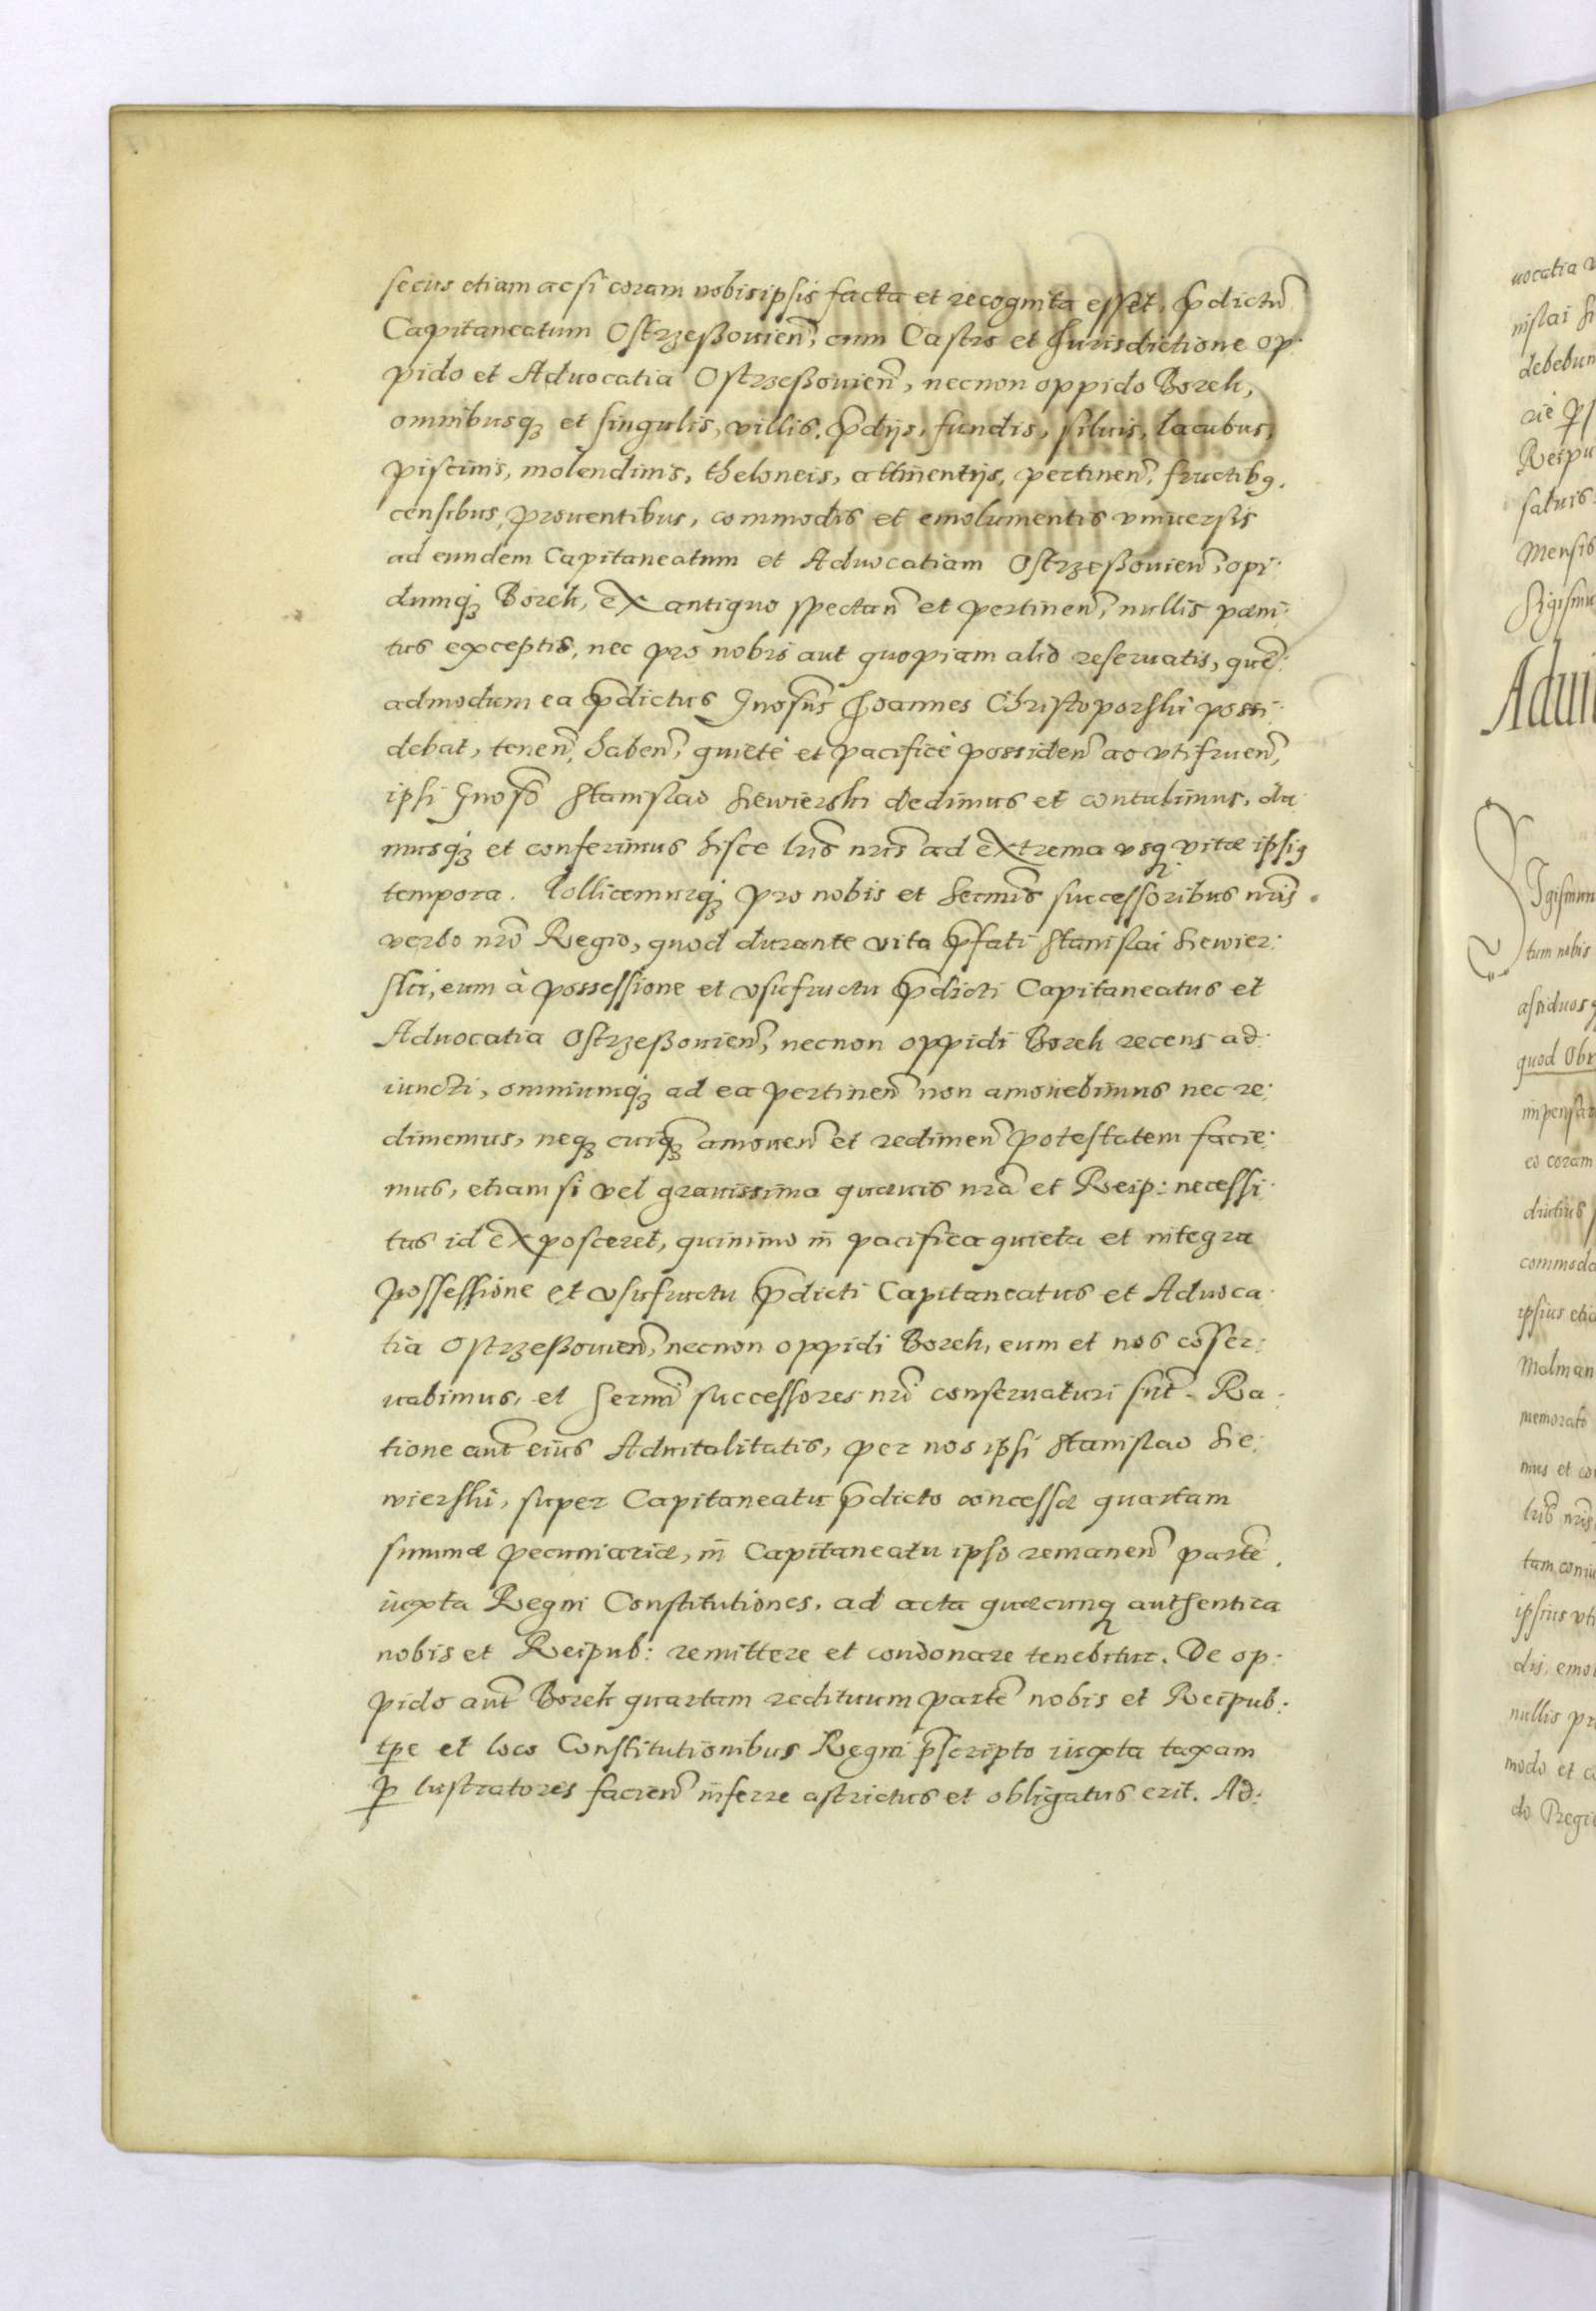 secus etiam ac si coram nobisipsis facta et recognita esset, p̄dictũ
Capitaneatum Ostrzeßouien̄, cum Castro et Jurisdictione op:
pido et Aduocatia Ostrzeßouien̄, necnon oppido Borek,
omnibusq́ꝫ et singulis, villis, p̄dijs, fundis, siluis, lacubus,
piscinis, molendinis, theloneis, attinentijs, pertinen̄, fructibꝯ,
censibus, prouentibus, commodis et emolumentis vniuersis
ad eundem Capitaneatum et Aduocatiam Ostrzeßouien̄, opi:
dumq́ꝫ Borek, ex antiquo spectan̄ et pertinen̄, nullis pæni:
tus exceptis, nec pro nobis aut quopiam alio reseruatis, quē:
admodum ea p̄dictus Gnosūs Joannes Christoporski possi:
debat, tenen̄, haben̄, quietè et pacificè possiden̄ ac vtifruen̄,
ipsi Gnosō Stanislao Siewierski dedimus et contulimus, da:
musq́ꝫ et conferimus hisce lr̄is nr̄is ad extrema vsqꝫ vitæ ipsiꝯ
tempora. Pollicemurq́ꝫ pro nobis et Sermīs successoribus nr̄is.
verbo nr̄o Regio, quod durante vita p̄fati Stanislai Siewier:
ski, eum à possessione et vsufructu p̄dicti Capitaneatus et
Aduocatia Ostrzeßouien̄, necnon oppidi Borek recens ad:
iuncti, omniumq́ꝫ ad ea pertinen̄ non amouebimus nec re:
dimemus, neqꝫ cuiq̄ꝫ amouen̄ et redimen̄ potestatem facie:
mus, etiam si vel grauissima quæuis nr̄a et Reip: necessi:
tas id exposceret, quinimo in̄ pacifica quieta et integra
possessione et vsufructu p̄dicti Capitaneatus et Aduoca:
tia Ostrzeßouien̄, necnon oppidi Borek, eum et nos cōser:
uabimus, et Sermī successores nr̄i conseruaturi sūt. Ra:
tione aut̄ eius Aduitalitatis, per nos ipsi Stanislao Sie:
wierski, super Capitaneatu p̄dicto concessæ quartam
summæ pecuniariæ, in̄ Capitaneatu ipso remanen̄ partē.
iuxta Regni Constitutiones, ad acta quæcunqꝫ authentica
nobis et Reipub: remittere et condonare tenebitur. De op:
pido aut̄ Borek quartam redituum partē nobis et Reipub:
tp̄e et loco Constitutionibus Regni p̄scripto iuxta taxam
ꝑ lustratores facien̄ inferre astrictus et obligatus erit. Ad: